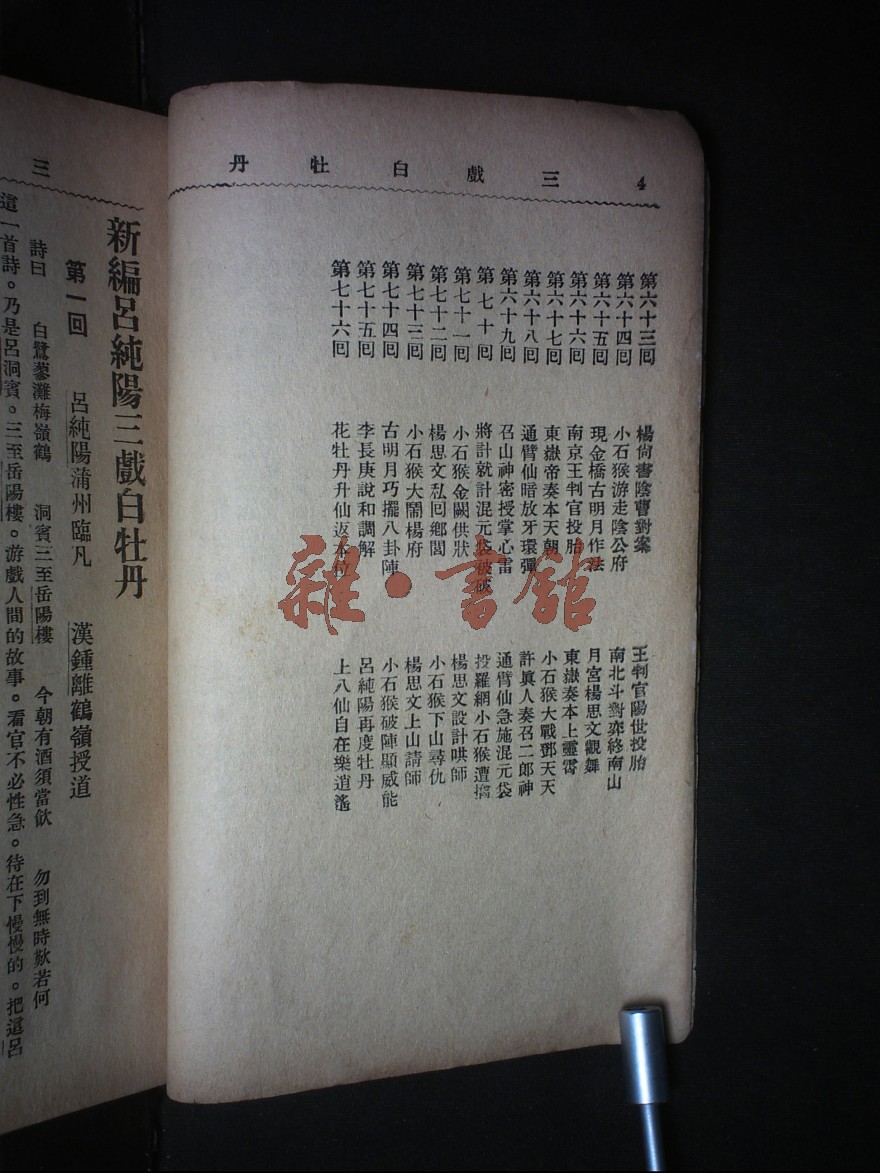 4 三戲白牡丹
第六十三囘 楊尙書陰曹對案 王判官陽世投胎
第六十四囘 小石猴游走陰公府 南北斗對弈終南山
第六十五囘 現金橋古明月作法 月宮楊思文觀舞
第六十六囘 南京王判官投胎 東嶽奏本上靈霄
第六十七囘 東嶽帝奏本天朝 小石猴大戰鄧天天
第六十八囘 通臂仙暗放牙環彈 許眞人奏召二郎神
第六十九囘 召山神密授掌心雷 通臂仙急施混元袋
第七十囘 將計就計混元袋被破 投羅網小石猴遭擒
第七十一囘 小石猴金闕供狀 楊思文設計哄師
第七十二囘 楊思文私回鄉閭 小石猴下山尋仇
第七十三囘 小石猴大鬧楊府 楊思文上山請師
第七十四囘 古明月巧擺八卦陣 小石猴破陣顯威能
第七十五囘 李長庚說和調解 呂純陽再度牡丹
第七十六囘 花牡丹升仙返本位 上八仙自在樂逍遙
雜·書舘
三
新編呂純陽三戲白牡丹
第一回 呂純陽蒲州臨凡 漢鍾離鶴嶺授道
詩曰 白鷺蓼灘梅嶺鶴 洞賓三至岳陽樓 今朝有酒須當飲 勿到無時歎若何
這一首詩。乃是呂洞賓。三至岳陽樓。游戲人間的故事。看官不必性急。待在下慢慢的。把這呂